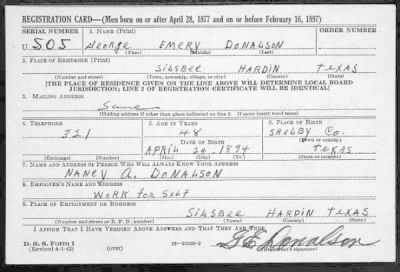 REGISTRATION CARD—(Men born on or after April 28, 1877 and on or before February 16, 1897)
SERIAL NUMBER 1. NAME (Print) ORDER NUMBER
U 505 George EMERY DONALSON
(First) (Middle) (Last)
2. PLACE OF RESIDENCE (Print)
SILSBEE HARDIN TEXAS
(Number and street) (Town, township, village, or city) (County) (State)
[THE PLACE OF RESIDENCE GIVEN ON THE LINE ABOVE WILL DETERMINE LOCAL BOARD
JURISDICTION; LINE 2 OF REGISTRATION CERTIFICATE WILL BE IDENTICAL]
3. MAILING ADDRESS
Same
[Mailing address if other than place indicated on line 2. If same insert word same]
4. TELEPHONE 5. AGE IN YEARS 6. PLACE OF BIRTH
321 48 SHELBY CO.
DATE OF BIRTH (Town or county)
APRIL 24 1894 TEXAS
(Exchange) (Number) (Mo.) (Day) (Yr.) (State or country)
7. NAME AND ADDRESS OF PERSON WHO WILL ALWAYS KNOW YOUR ADDRESS
NANCY A. DONALSON
8. EMPLOYER'S NAME AND ADDRESS
WORK FOR SELF
9. PLACE OF EMPLOYMENT OR BUSINESS
SILSBEE HARDIN TEXAS
(Number and street or R. F. D. number) (Town) (County) (State)
I AFFIRM THAT I HAVE VERIFIED ABOVE ANSWERS AND THAT THEY ARE TRUE.
D. S. S. Form 1
(Revised 4-1-42) (over) G E Donalson